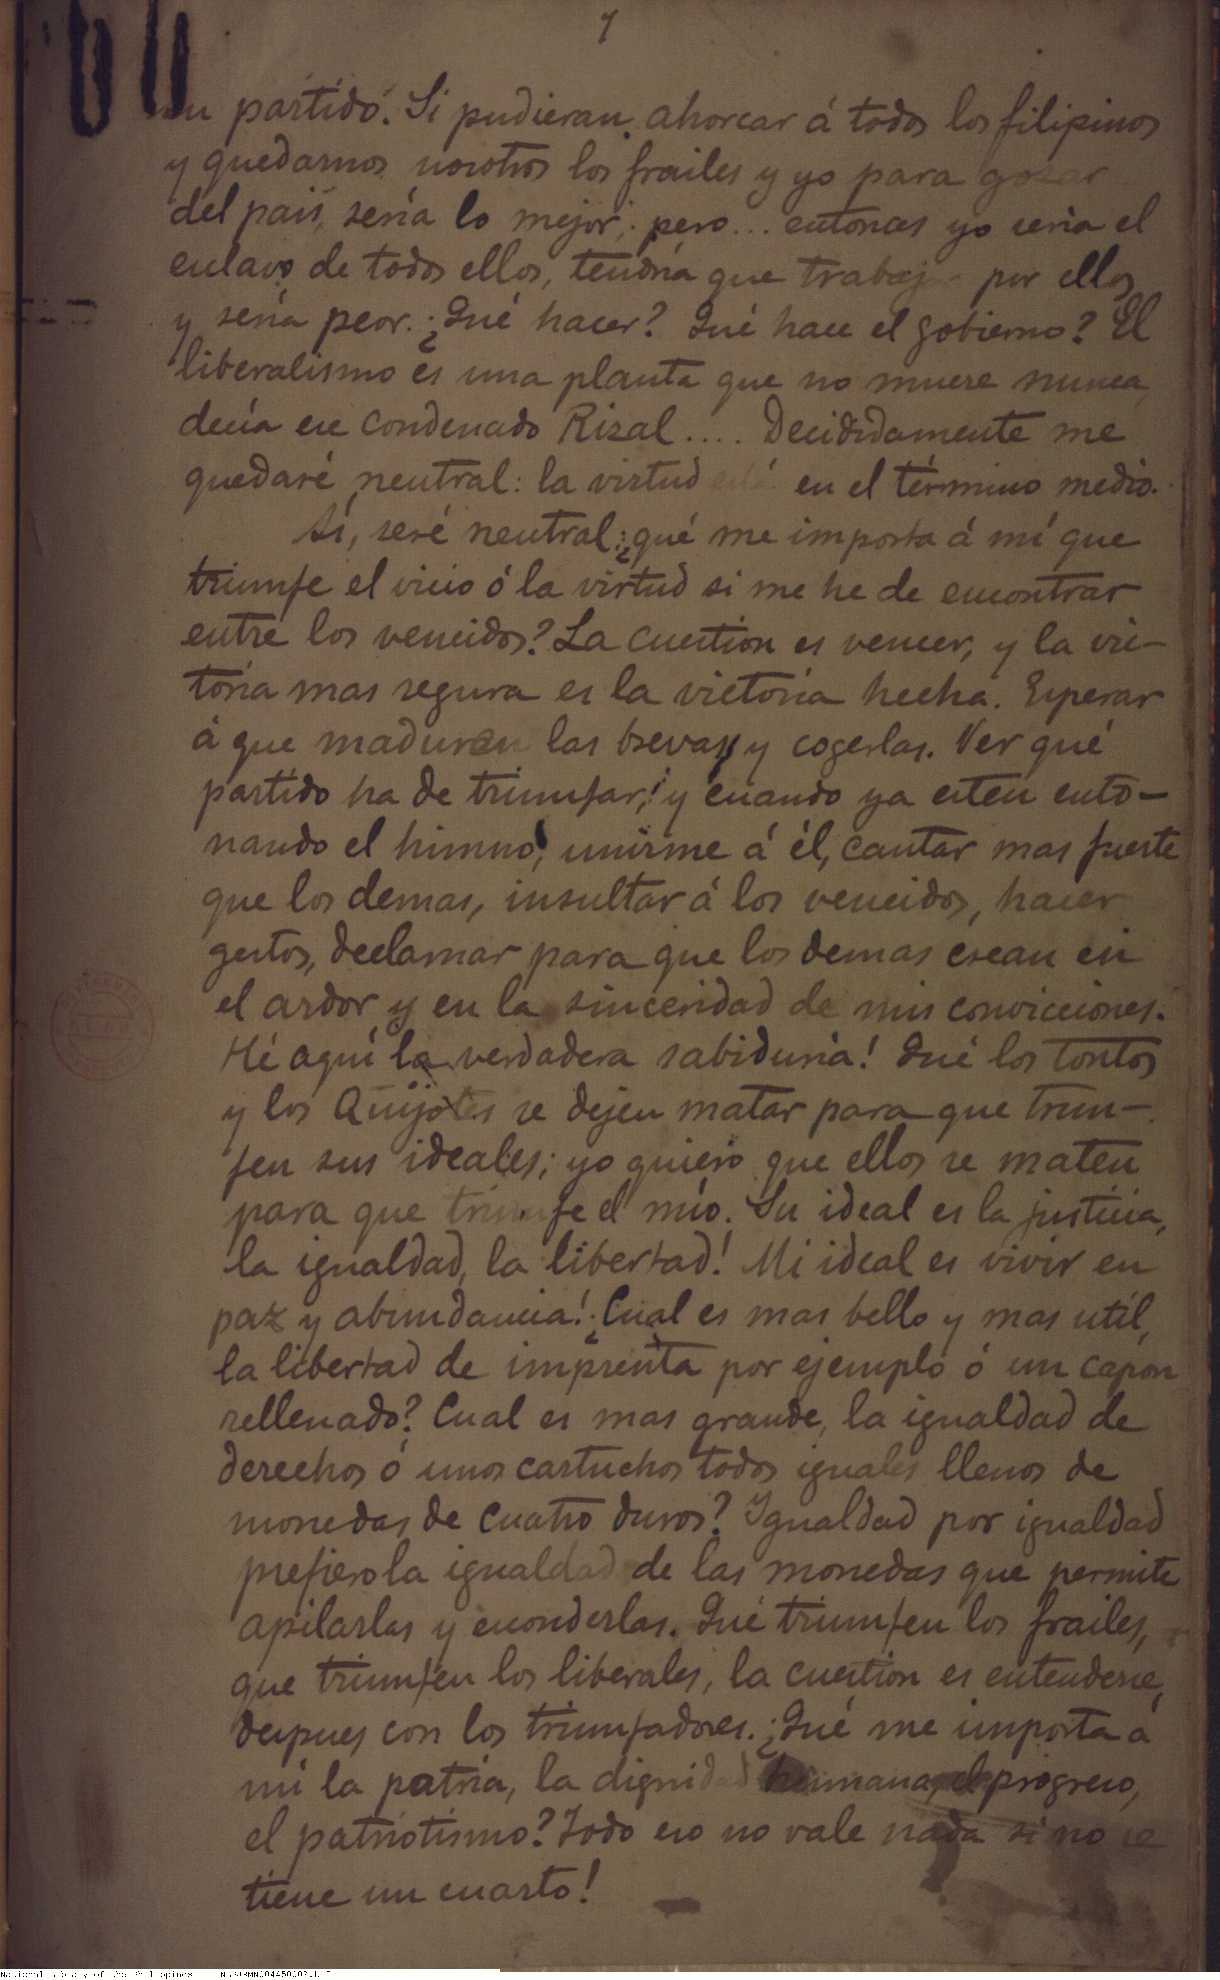 7
su partido. Si pudieran ahorcar á todos los filipinos
y quedarnos nosotros los frailes y yo para gozar
del pais, sería lo mejor; pero... entonces yo seria el
esclavo de todos ellos, tendría que trabajar por ellos
y sería peor. ¿Qué hacer? Qué hace el gobierno? El
liberalismo es una planta que no muere nunca,
decía ese condenado Rizal.... Decididamente me
quedaré neutral: la virtud está en el término medio.
Sí, seré neutral; ¿qué me importa á mí que
triunfe el vicio ó la virtud si me he de encontrar
entre los vencidos? La cuestion es vencer, y la vic-
toria mas segura es la victoria hecha. Esperar
á que maduren las brevas y cogerlas. Ver qué
partido ha de triunfar, y cuando ya esten ento-
nando el himno, unirme á él, cantar mas fuerte
que los demas, insultar á los vencidos, hacer
gestos, declamar para que los demas crean en
el ardor y en la sinceridad de mis convicciones.
Hé aquí la verdadera sabiduria! Qué los tontos
y los Quijotes se dejen matar para que triun-
fen sus ideales; yo quiero que ellos se maten
para que triunfe el mío. Su ideal es la justicia,
la igualdad, la libertad! Mi ideal es vivir en
paz y abundancia! ¿Cual es mas bello y mas util,
la libertad de imprenta por ejemplo ó un capon
rellenado? Cual es mas grande, la igualdad de
derechos ó unos cartuchos todos iguales llenos de
monedas de cuatro duros? Igualdad por igualdad
prefiero la igualdad de las monedas que permite
apilarlas y esconderlas. Qué triunfen los frailes,
que triunfen los liberales, la cuestion es entenderse
despues con los triunfadores. ¿Qué me importa á
mí la patria, la dignidad humana, el progreso,
el patriotismo? Todo eso no vale nada si no se
tiene un cuarto!
National Library of the Philippines